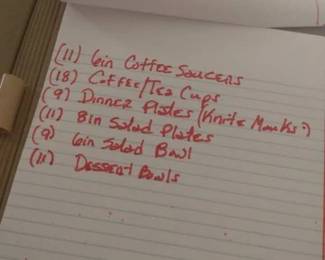 (11) 6in Coffee Saucers
(18) Coffee/Tea Cups
(9) Dinner Plates (Knife Marks?)
(11) 8in Salad Plates
(9) 6in Salad Bowl
(11) Dessert Bowls